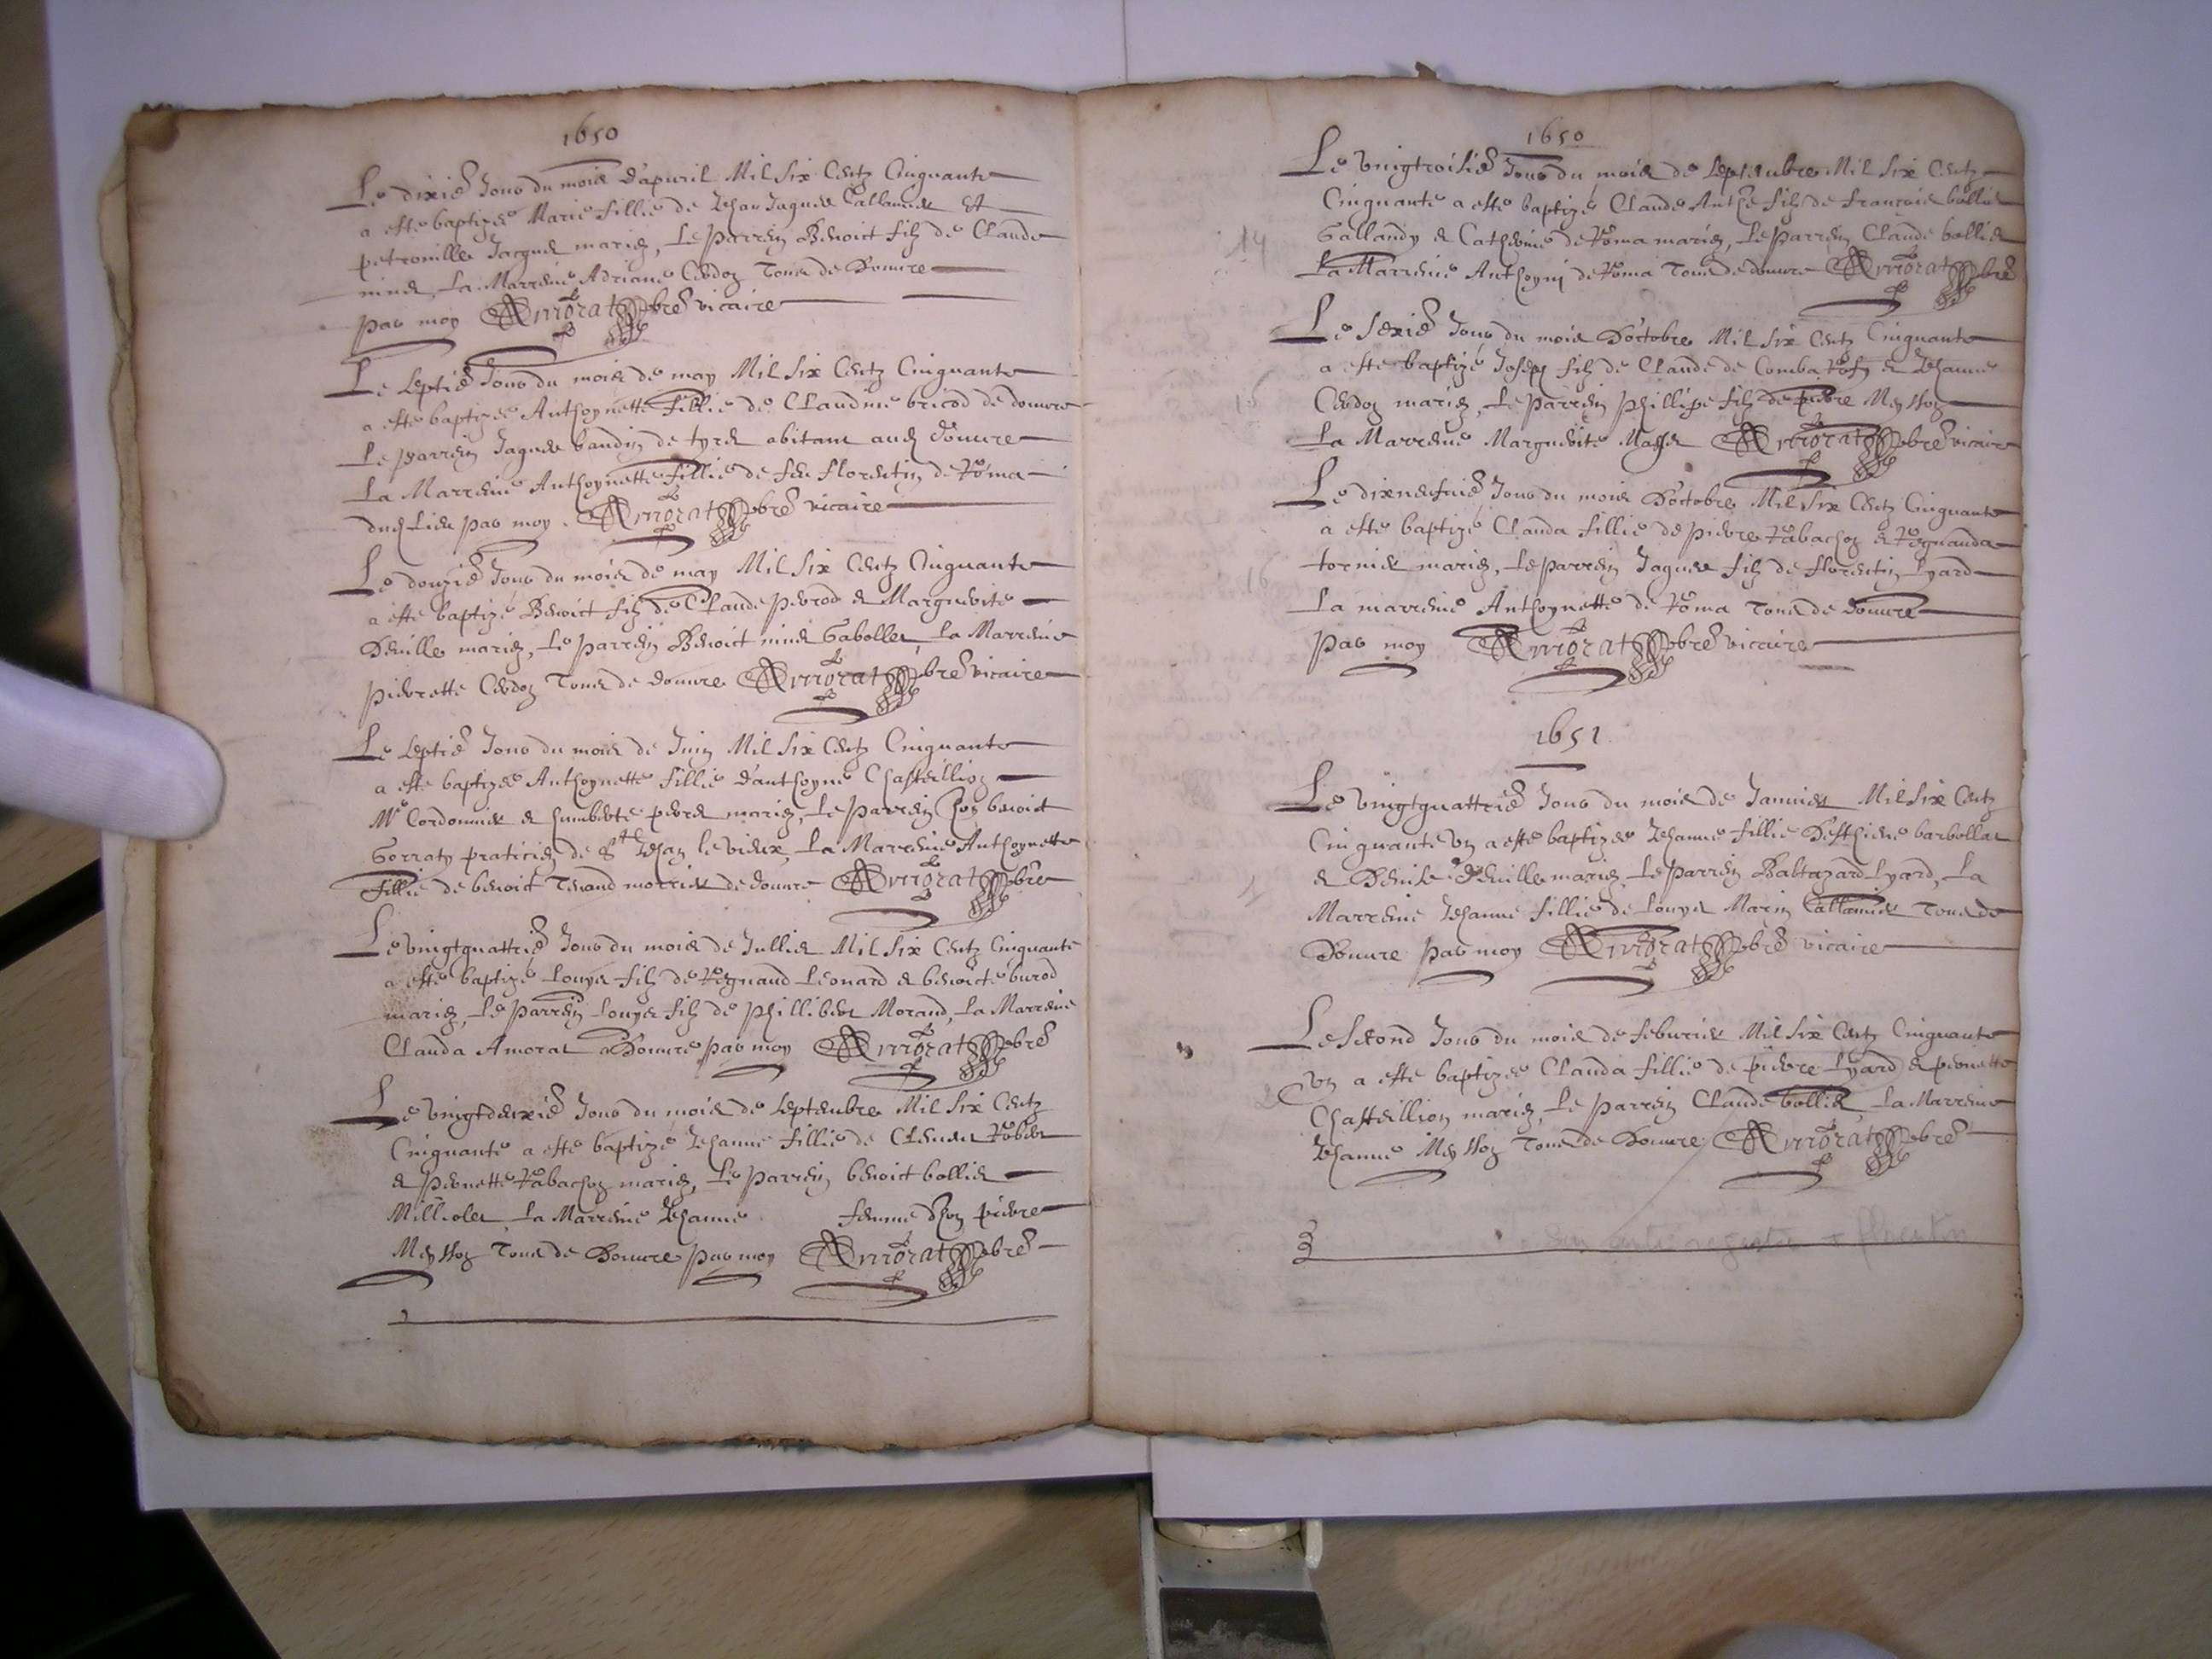 1650
Le dixie Jour du mois d'apuril Mil Six Centz Cinquante
a este baptizee Marie fillie de Jehan Jaques Callamier Et
petronille Jacquet mariez, Le parrein Benoict filz de Claude
minet, La Marreine Adriane Cerdoz Tous de Donure
par moy Amorat pbre vicaire
Le Septie Jour du mois de may Mil Six Centz Cinquante
a este baptizee Anthoynette fillie de Claudine bricod de donure
Le parrein Jaques baudin de tyret abitant aud Donure
La Marreine Anthoynette fillie de feu florentin de Roma
dud Lieu par moy Amorat pbre vicaire
Le douzie Jour du mois de may Mil Six Centz Cinquante
a este baptizé Benoict filz de Claude perrod et Marguerite
Deville mariez, Le parrein Benoict minet Gabollet, La Marreine
pierrette Cerdoz Tous de donure Amorat pbre vicaire
Le Septie Jour du mois de Juin Mil Six Centz Cinquante
a este baptizee Anthoynette fillie d'anthoyne Chasteillion
Me Cordonnier et humberte mariez, Le Parrein hon benoict
Gorraty praticien de St Jehan le vieux, La Marreine Anthoynette
fillie de benoict Tenand de donure Amorat pbre
Le vingtquattrie Jour du mois de Jullier Mil Six Centz Cinquante
a este baptizé Louys filz de Regnaud Leonard et benoicte burod
mariez, Le parrein Louys filz de phillibert Morand, La Marreine
Clauda Amorat a Donure par moy Amorat pbre
Le vingtdeuxie Jour du mois de Septembre Mil Six Centz
Cinquante a este baptizé Jehanne fillie de Clement Robert
et pernette Rabachoz mariez, Le parrein benoict bollier
Milliolet La Marreine Jehanne femme d'hon pierre
Meyssoz Tous de Donure par moy Amorat pbre
1650
Le vingtroisie Jour du mois de Septembre Mil Six Centz
Cinquante a este baptizé Claude Anthe filz de francois bollier
Gallandy et Catherine de Roma mariez, Le parrein Claude bollier
La Marreine Anthoyni de Roma Tous de donure Amorat pbre
14
Le Sexie Jour du mois d'octobre Mil Six Centz Cinquante
a este baptizé Joseph filz de Claude de Comba et Jehanne
Cerdoz mariez, Le parrein phillipe filz de pierre Meyssoz
15
La Marreine Marguerite Amorat pbre vicaire
Le dixneufuie Jour du mois d'octobre Mil Six Centz Cinquante
a este baptizé Clauda fillie de pierre Rabachoz et Regnauda
tornier mariez, Le parrein Jaques filz de florentin Lyard
16
La marreine Anthoynette de Roma Tous de donure
par moy Amorat pbre vicaire
1651
Le vingtquattrie Jour du mois de Januier Mil Six Centz
Cinquante vn a este baptizee Jehanne fillie d'esthiene barbollat
et Denise Deville mariez, Le parrein Baltazard Lyard, La
1
Marreine Jehanne fillie de Louys Marin Callamier Tous de
Donure par moy Amorat pbre vicaire
Le Second Jour du mois de feburier Mil Six Centz Cinquante
vn a este baptizee Clauda fillie de pierre Lyard et pernette
2
Chasteillion mariez, Le parrein Claude bollier, La Marreine
Jehanne Meyssoz Tous de Donure Amorat pbre